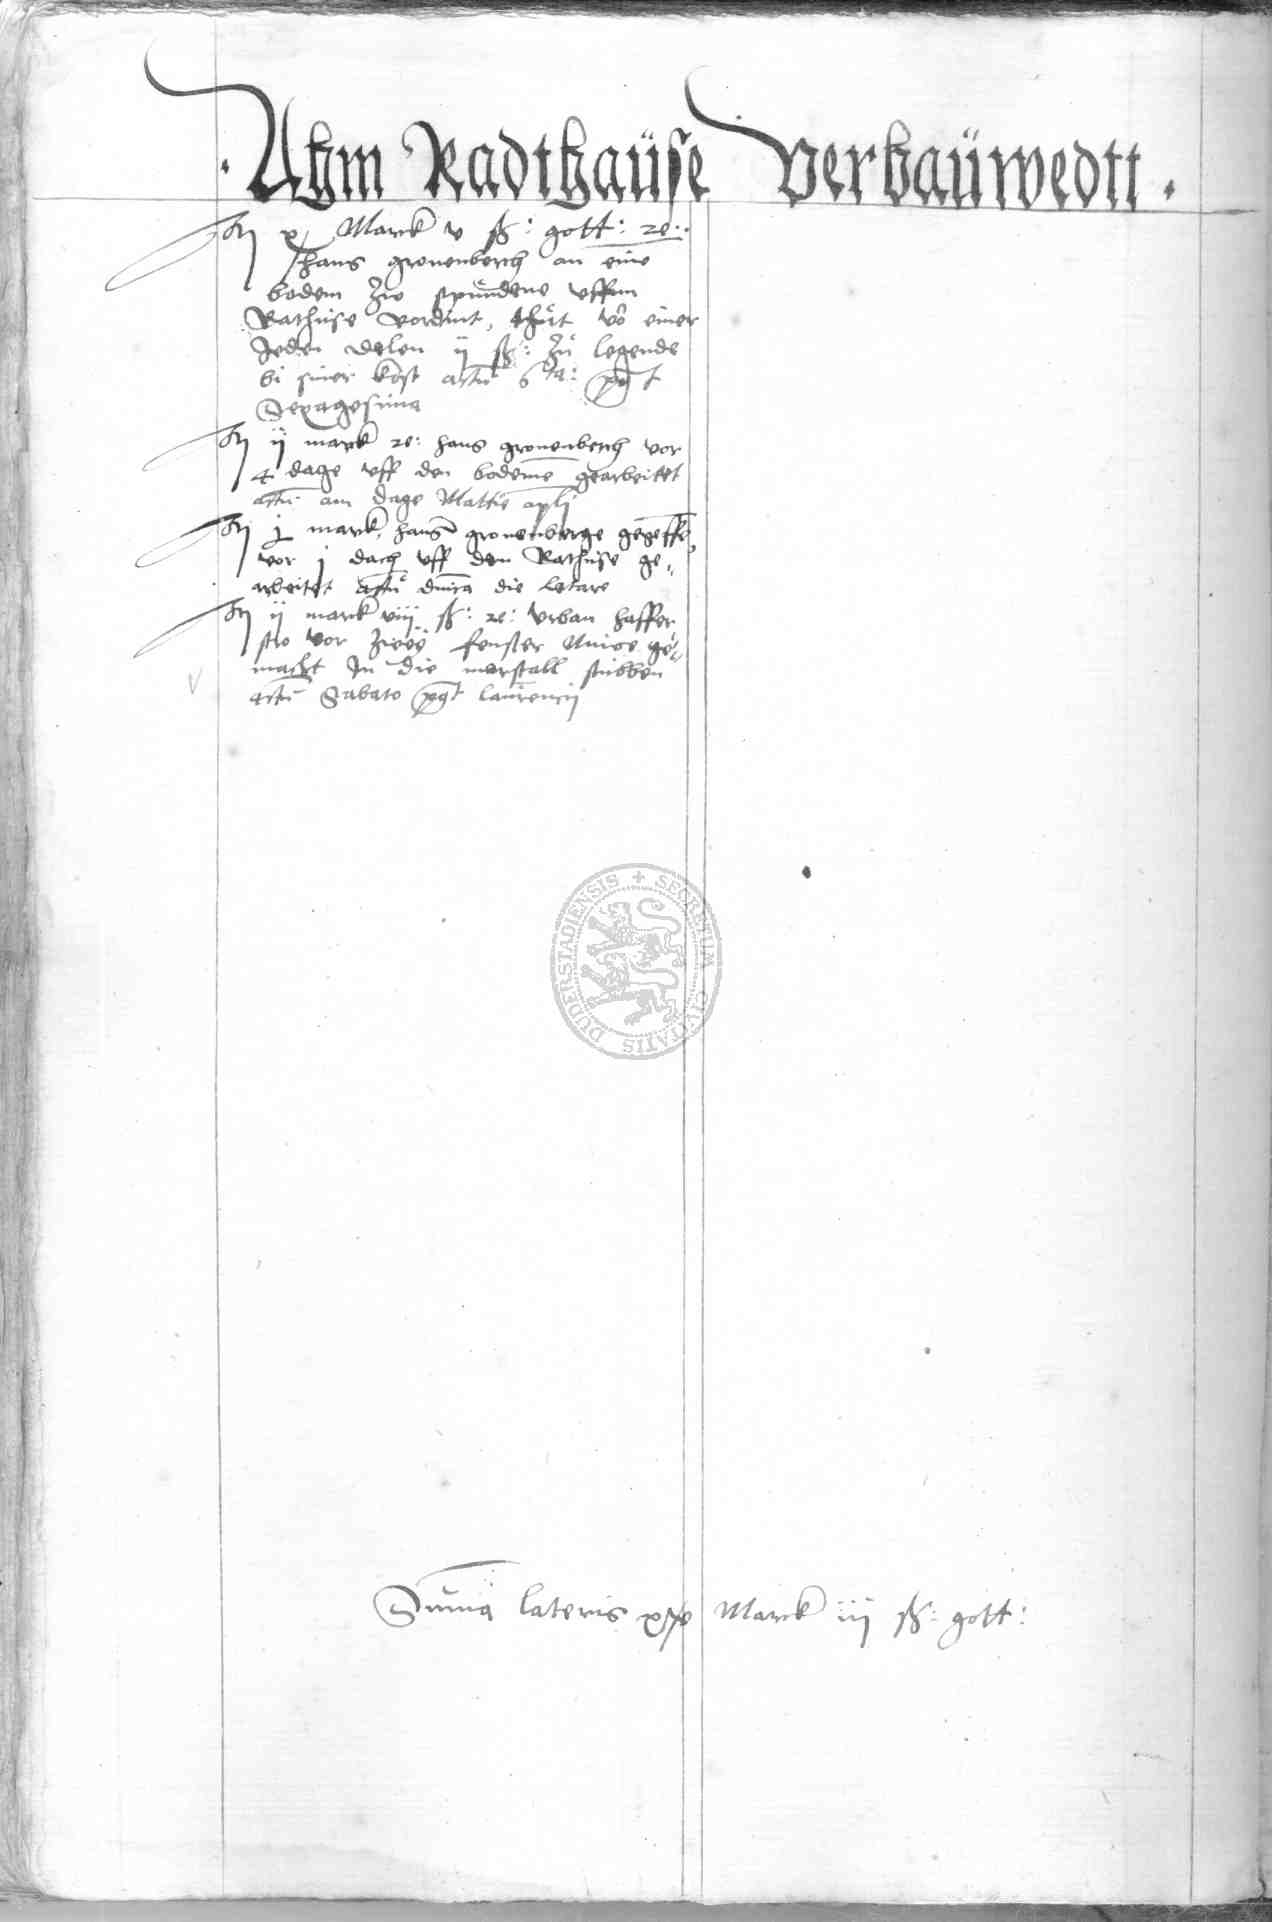 . Ahm Radthaüse Verbaüwedtt .
x Marck v ß: gott: re:
hans gronenberch an eine
bodem zu spündene uffm
Rathuse vordint, thut vo einer
Jeden delen ij ß: zu legende
bi siner kost actu post
Sexagesima
ij marck re: hans gronenberch vor
4 dage uff den bodeme gearbeitet
actu am dage Mattie apli
j marck hans gronenberge gegeffe
vor j dach uff dem Rathuse ge„
arbeitet actu dnica die letare
ij marck viij ß: re: urban haffer
stro vor fenster ge„
macht In die marstall stubben
actu Sabato post laurencij
Suma lateris Marck iij ß: gott:
SECRETUM CIVITATIS DUDERSTADIENSIS